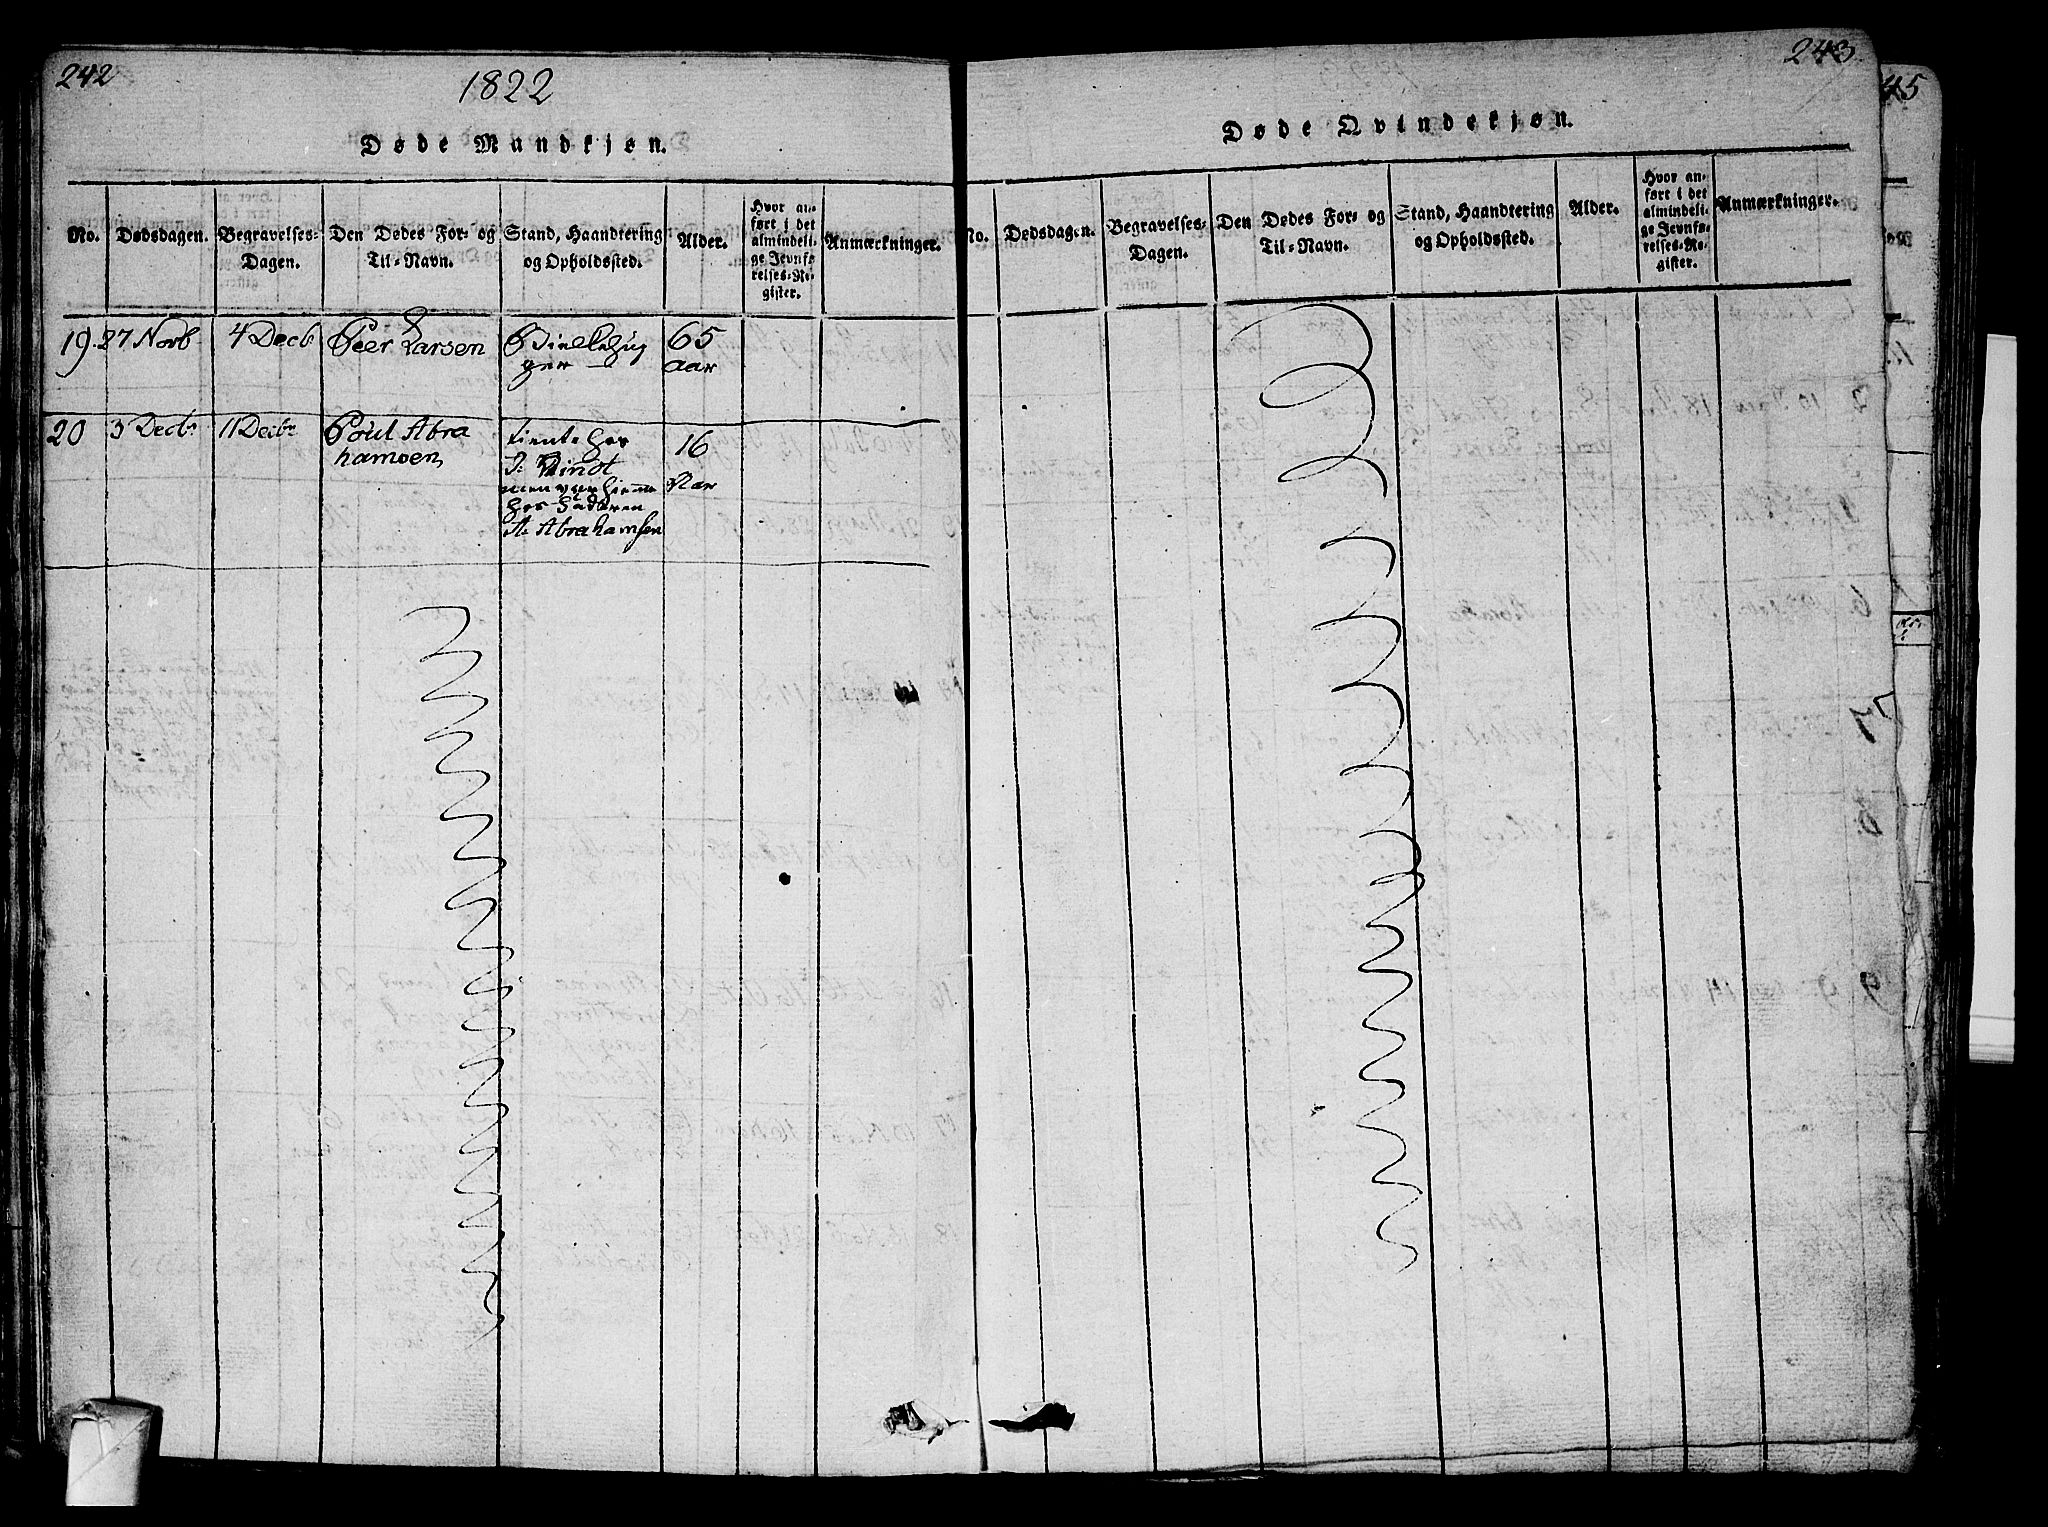 242
1822
Døde Mandkjøn.
No.
Dødsdagen.
Begravelses-
Dagen.
Den Dødes For- og
Til-Navn.
Stand, Haandtering
og Opholdssted.
Alder.
Hvor an-
ført i det
almindeli-
ge Jevnfø-
relses-Re-
gister.
Anmærkninger.
19.
27 Novb
4 Decb
Peer Larsen
Bielkehug
ger
65
aar
20
3 Decbr
11 Decbr
Poul Abra
hamsen
tiente hos
16
men var hiemme
hos Faderen
Aar
A. Abrahamsen
243
Døde Qvindekjøn.
No.
Dødsdagen.
Begravelses-
Dagen.
Den Dødes For- og
Til-Navn.
Stand, Haandtering
og Opholdssted.
Alder.
Hvor an-
ført i det
almindeli-
ge Jevnfø-
relses-Re-
gister.
Anmærkninger.
45